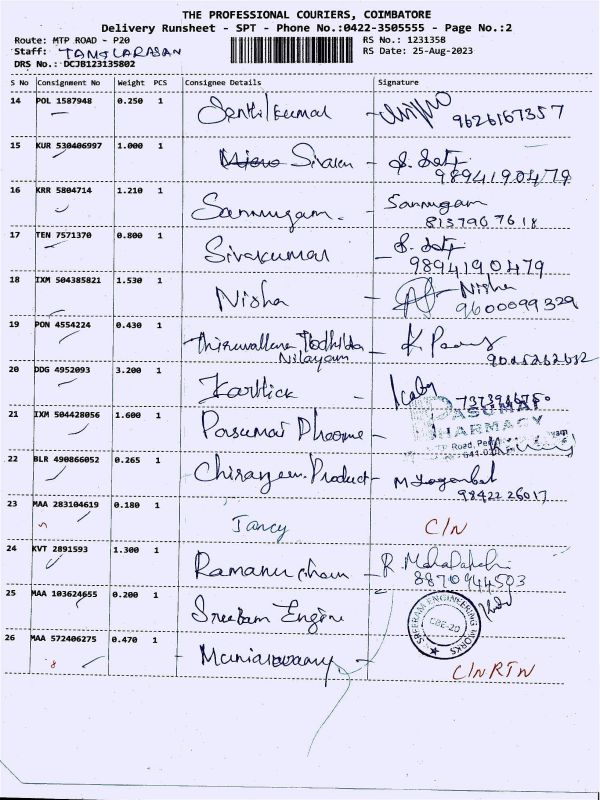 THE PROFESSIONAL COURIERS, COIMBATORE
Delivery Runsheet - SPT - Phone No.:0422-3505555 - Page No.:2
Route: MTP ROAD - P20
Staff: TAMILARASAN
DRS No.: DCJB123135802
RS No.: 1231358
RS Date: 25-Aug-2023
S No Consignment No Weight PCS Consignee Details Signature
14 POL 1587948 0.250 1 Senthilkumar 9626167357
15 KUR 530406997 1.000 1 Sivam
9894190479
16 KRR 5804714 1.210 1 Sanmugam. Sanmugam
8137907618
17 TEN 7571370 0.800 1 Sivakumar
9894190479
18 IXM 504385821 1.530 1 Nisha - Nisha
9600099329
19 PON 4554224 0.430 1
Nilayam
20 DDG 4952093 3.200 1 Karthick -
21 IXM 504428056 1.600 1 Pasumai -
PASUMAI
PHARMACY
22 BLR 490866052 0.265 1 Product -
98422 26017
23 MAA 283104619 0.180 1 Jancy C/N
24 KVT 2891593 1.300 1
8870944503
25 MAA 103624655 0.200 1 Sreeram
SREERAM ENGINEERING WORKS
CBE-20
26 MAA 572406275 0.470 1 C/N RTN